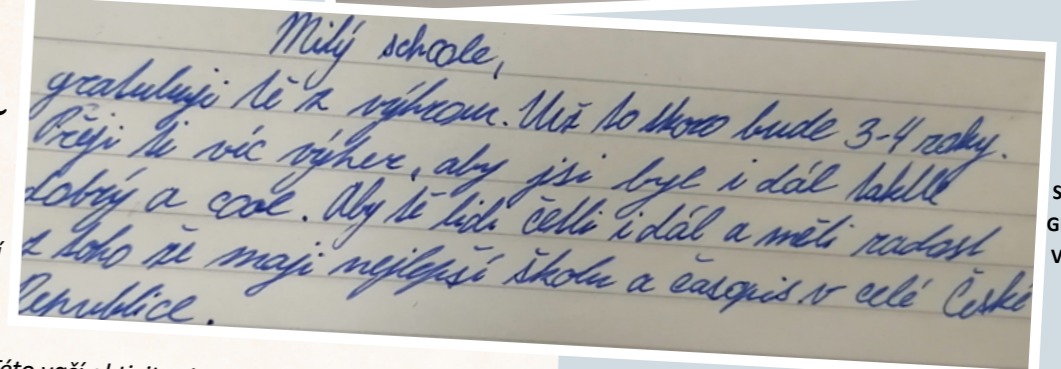 Milý schoole,
gratuluji tě z výhrou. Už to skoro bude 3-4 roky.
Přeji ti víc výher, aby jsi byl i dál takhle
dobrý a cool. Aby tě lidi četli i dál a měli radost
z toho že maji nejlepší školu a časopis v celé České
Republice.
S
G
V